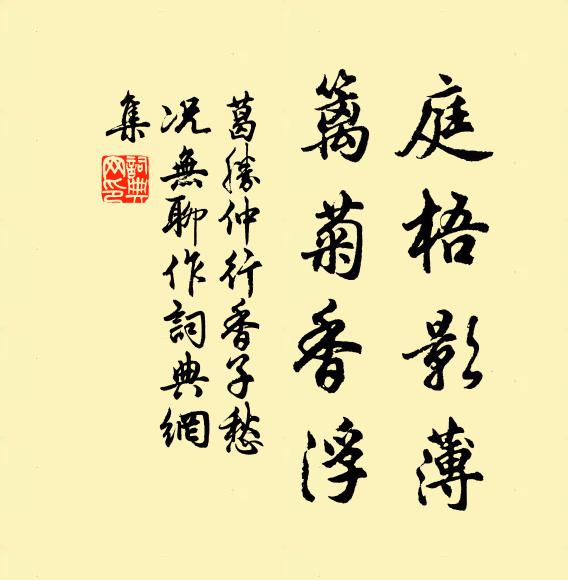 庭梧影薄
篱菊香浮
葛勝仲行香子愁
况無聊作詞典網
集
詞典
网印